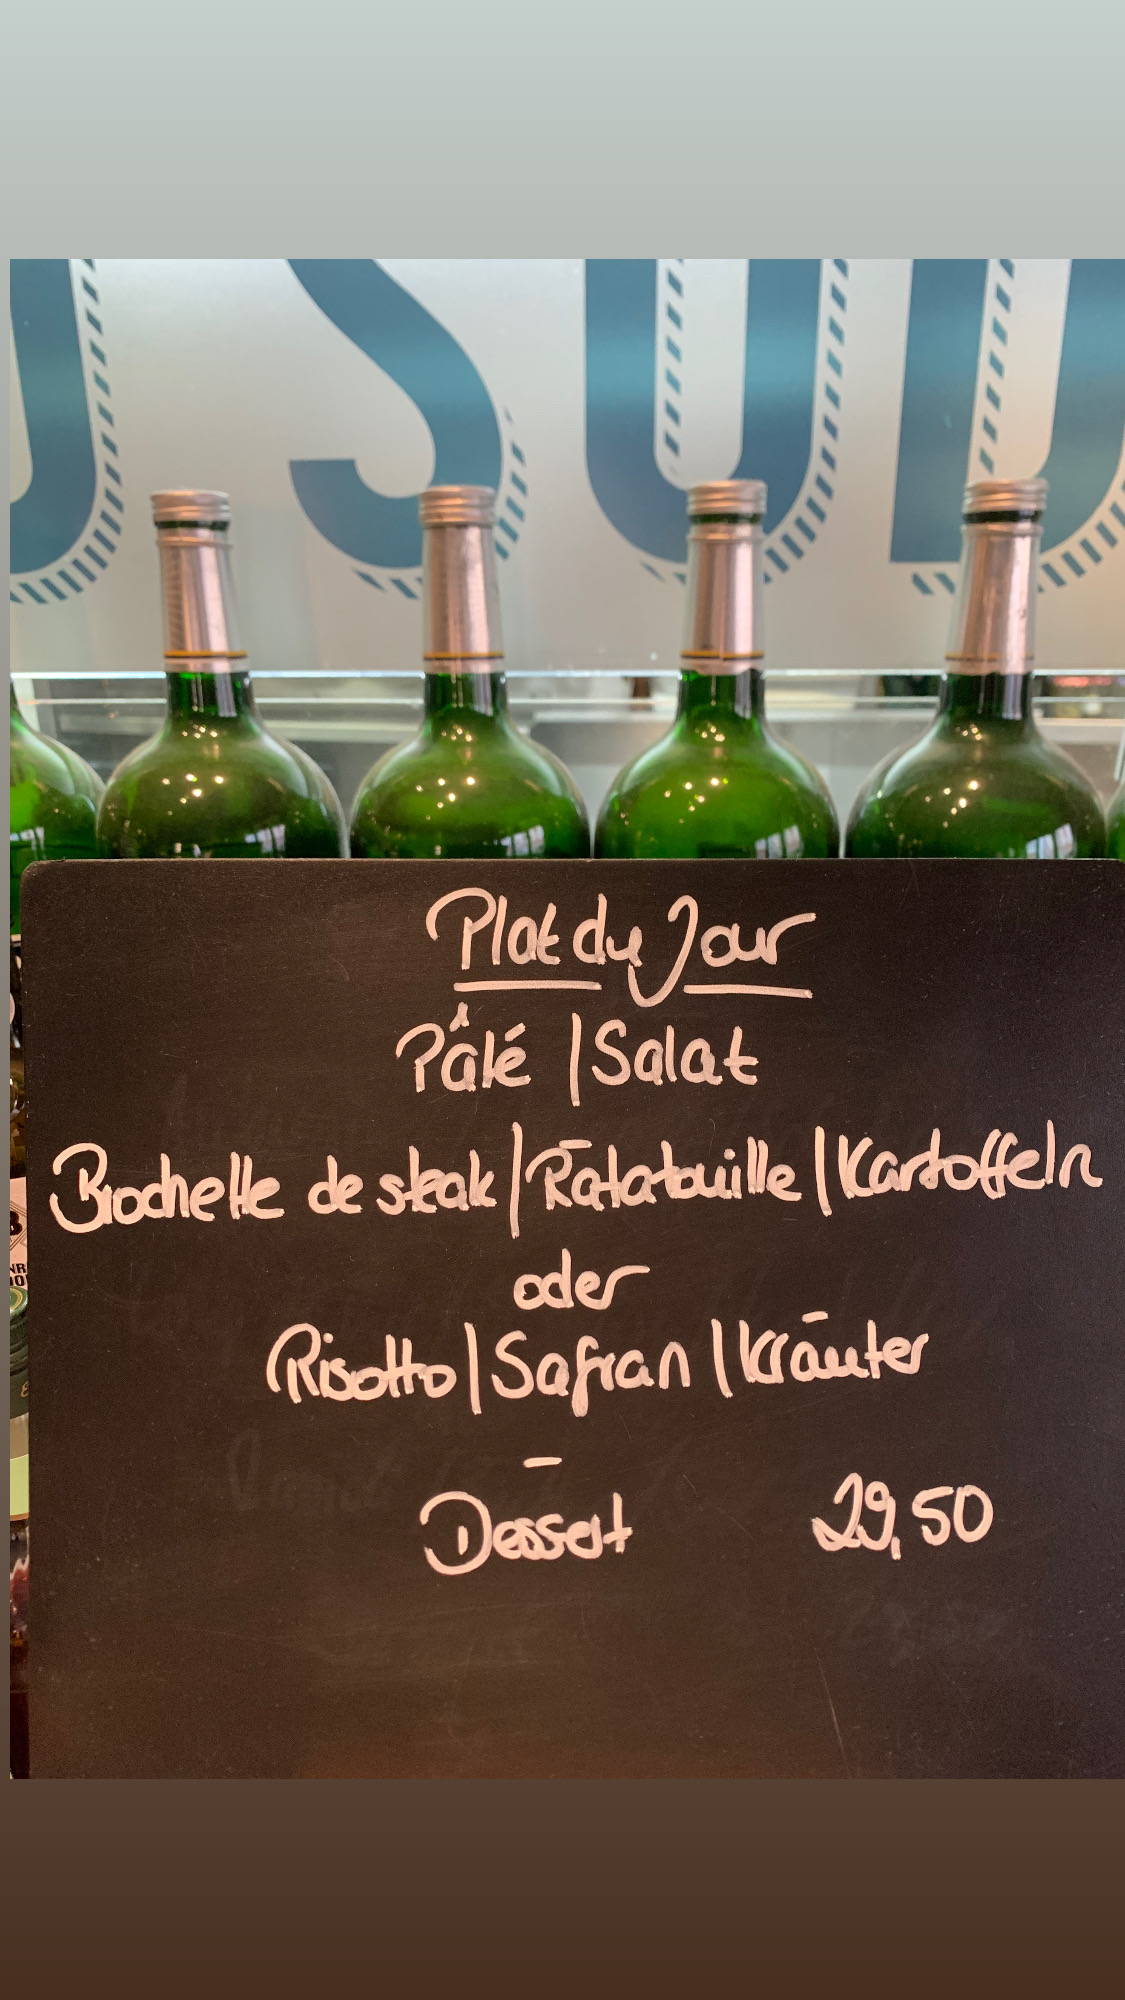 SUD
Plat du Jour
Pâté | Salat
–
Brochette de steak | Ratatouille | Kartoffeln
oder
Risotto | Safran | Kräuter
–
Dessert 29,50